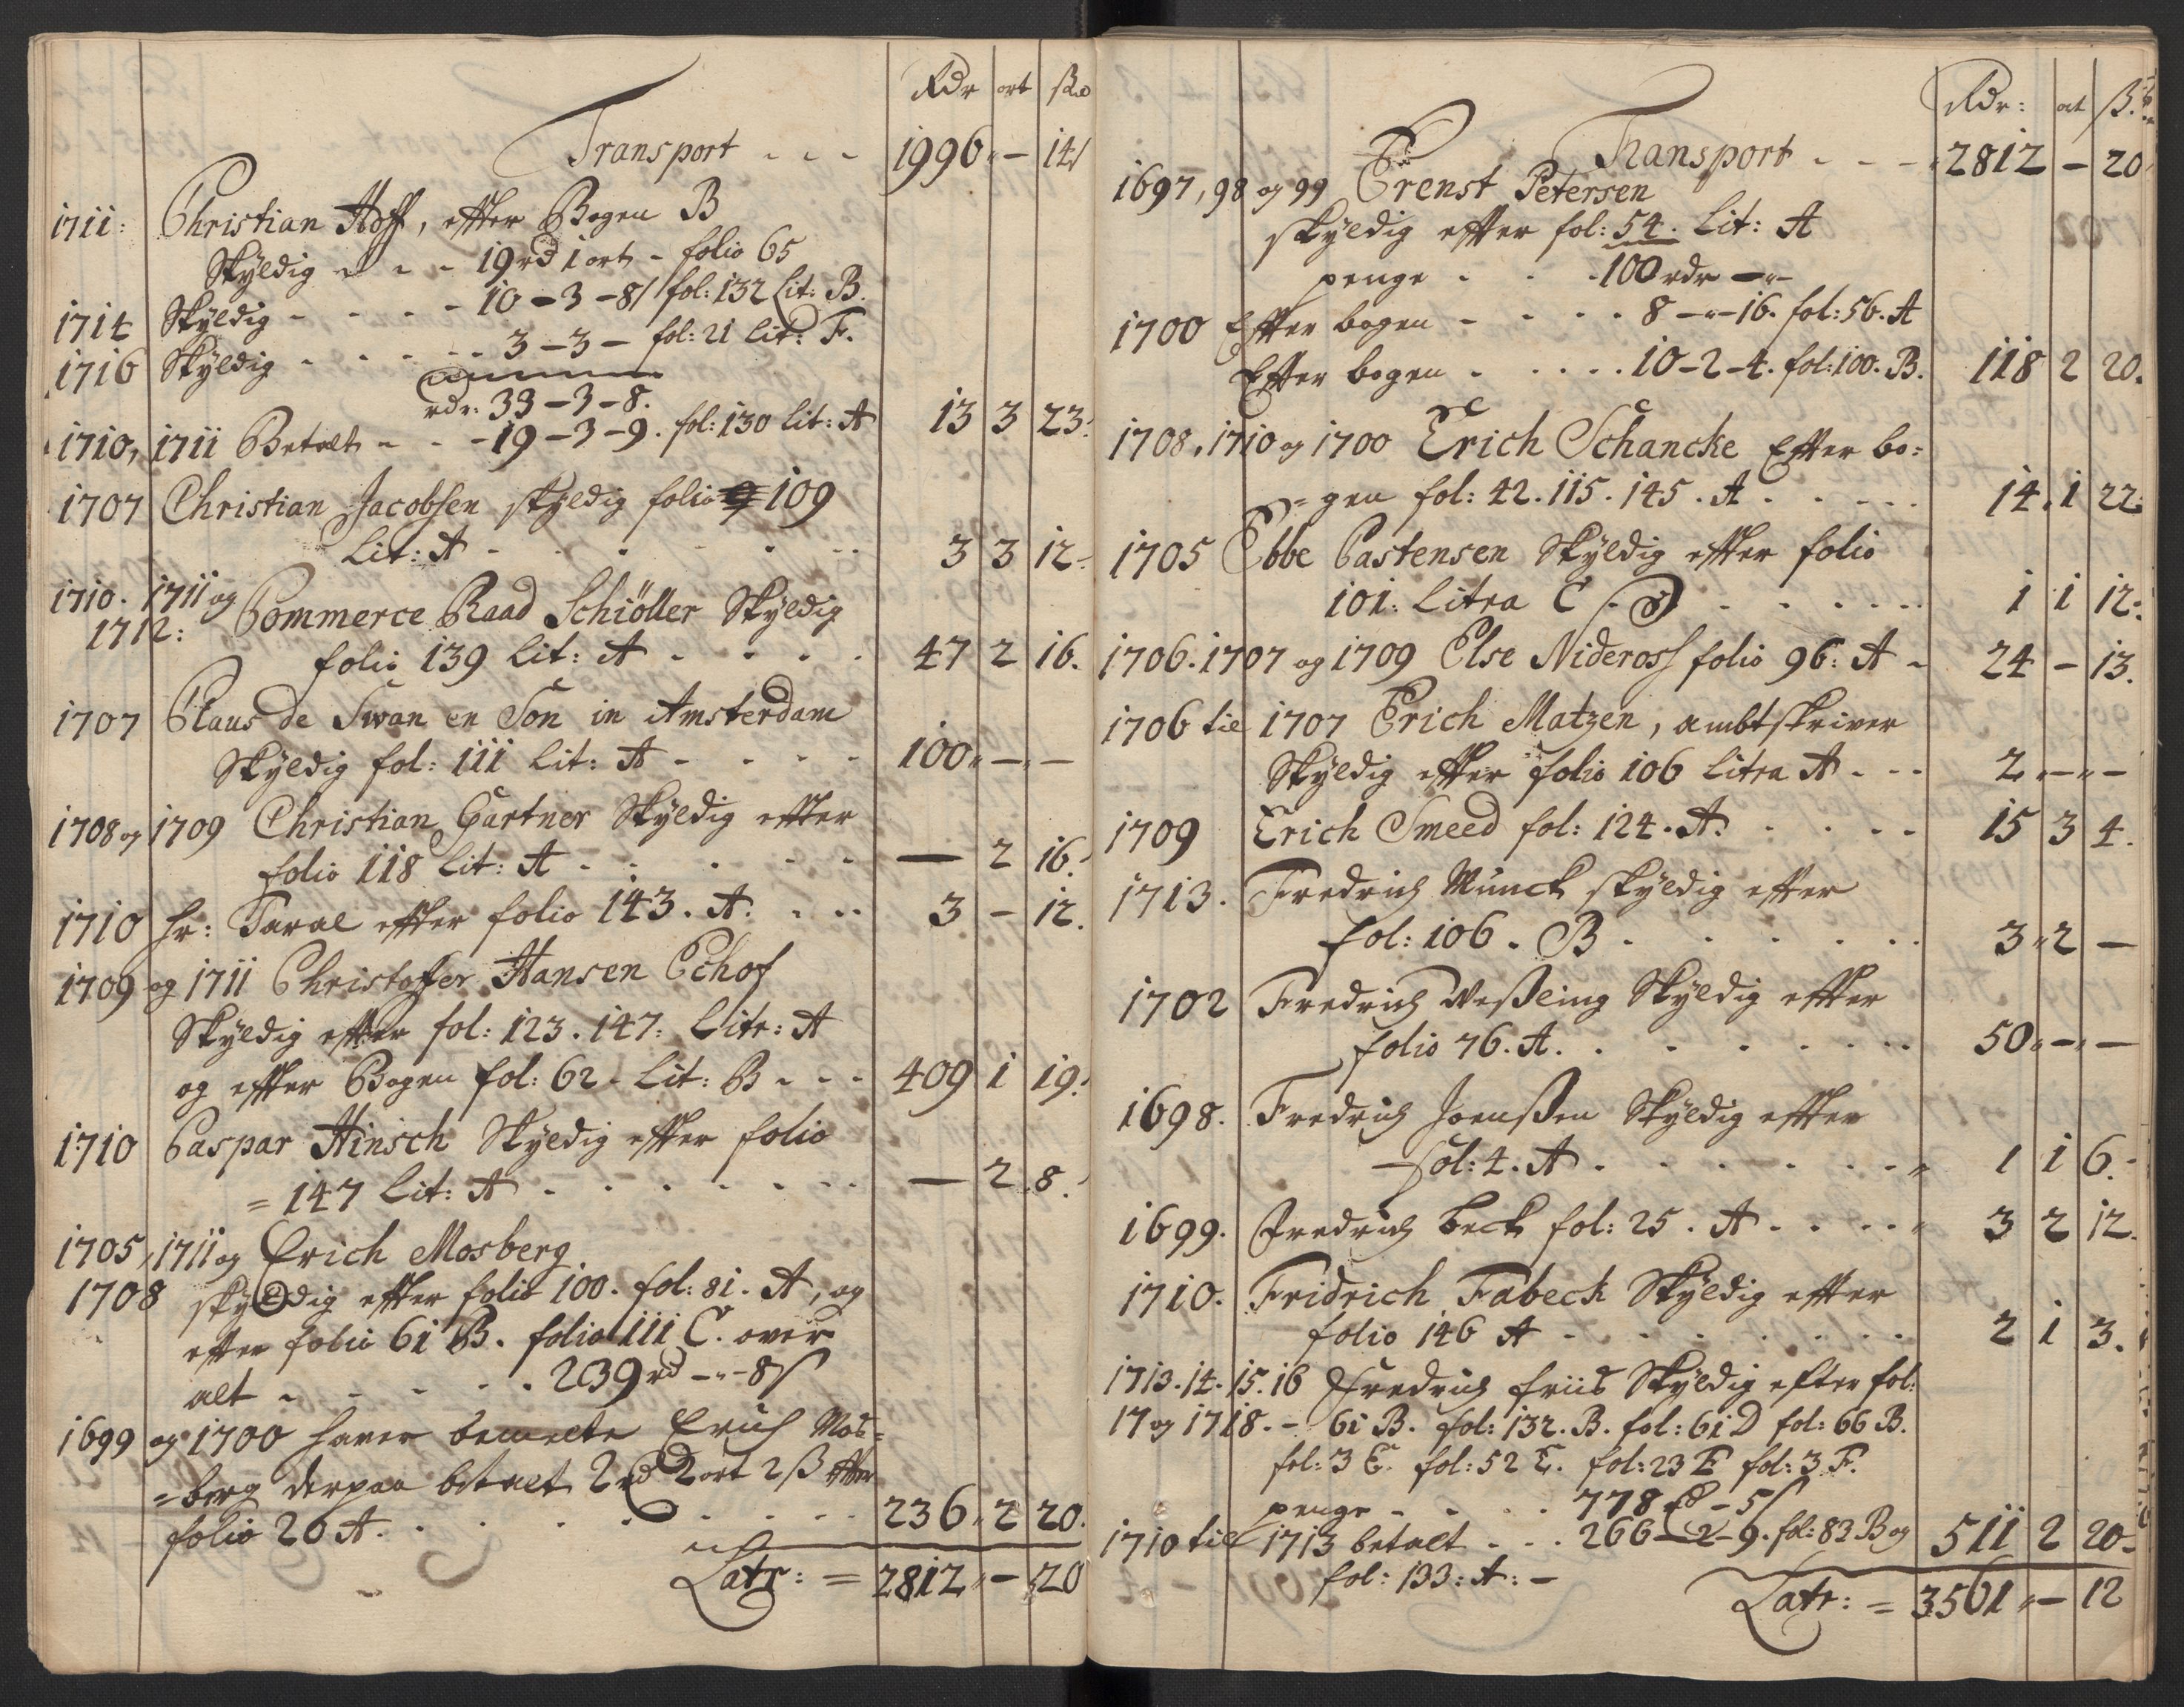 Rdr ort ß
Transport - - - 1996 - 14
1711: Christian Hoff, efter Bogen B
Skyldig - - - 19 rd 1 ort - folio 65
1714 Skyldig - - - - 10 - 3 - 8 fol: 132 Lit: B.
1716 Skyldig - - - - 3 - 3 - fol: 21 Lit: F.
rdr: 33 - 3 - 8.
1710, 1711 Betalt - - - 19 - 3 - 9. fol: 130 Lit: A 13 3 23.
1707 Christian Jacobsen skyldig folio 109
Lit: A - - - - - 3 3 12
1710. 1711 og
1712: Commerce Raad Schiöller Skyldig
folio 139 Lit: A - - - - 47 2 16.
1707 Claus de Swan en Son in Amsterdam
Skyldig fol: 111 Lit: A - - - - 100 - -
1708 og 1709 Christian Gartner Skyldig efter
folio 118 Lit: A - - - - - — 2 16.
1710 hr: Taral efter folio 143. A. - - - 3 - 12.
1709 og 1711 Christoffer Hansen Echof
Skyldig efter fol: 123. 147: Litr: A
og efter Bogen fol: 62 - Lit: B - - - 409 1 19.
1710 Caspar Hinsch Skyldig efter folio
= 147 Lit: A - - - - - — 2 8.
1705, 1711 og Erich Mosberg
1708 skyldig efter folio 100. fol: 81. A, og
efter folio 61 B. folio 111 C. over
alt - - - - - 239 rd - - 8 ß
1699 og 1700 haver bemelte Erich Mos=
=berg derpaa betalt 2 rd 2 ort 2 ß efter
folio 26 A. - - - - - 236 2 20.
Latr: = 2812 - 20
Rdr: ort ß.
Transport - - - 2812 - 20
1697, 98 og 99 Erenst Petersen
skyldig efter fol: 54. Lit: A
penge - - - 100 rdr - -
1700 Efter bogen - - - - 8 - - 16. fol: 56. A
Efter bogen - - - - 10 - 2 - 4. fol: 100. B. 118 2 20.
1708, 1710 og 1700 Erich Schancke Efter bo=
=gen fol: 42. 115. 145. A - - - - 14. 1 22.
1705 Ebbe Castensen Skyldig efter folio
101: Litra C - - - - 1 1 12.
1706. 1707 og 1709 Else Nideross folio 96: A - 24 - 13.
1706 til 1707 Erich Matzen, ambtskriver
Skyldig efter folio 106 Litra A - - - 2 - -
1709 Erich Smeed fol: 124. A. - - - - 15 3 4.
1713. Fredrich Munck skyldig efter
fol: 106. B - - - - - 3 2 -
1702 Fredrich Weßling Skyldig efter
folio 76. A. - - - - - 50 - -
1698. Fredrich Joenßen Skyldig efter
fol: 4. A - - - - - 1 1 6.
1699. Fredrich Beck fol: 25. A - - - - 3 2 12.
1710. Fridrich Fabech Skyldig efter
folio 146 A - - - - - 2 1 3.
1713. 14. 15. 16 Fredrich Friis Skyldig efter fol:
17 og 1718. - 61 B. fol: 132. B. fol: 61 D fol: 66 B.
fol: 3 E. fol: 52 E. fol: 23 E fol: 3 F.
penge - - - - 778 - 5 ß
1710 til 1713 betalt - - - 266 - 2 - 9. fol: 83 B og 511 2 20
fol: 133: A: -
Latr: = 3561 - 12